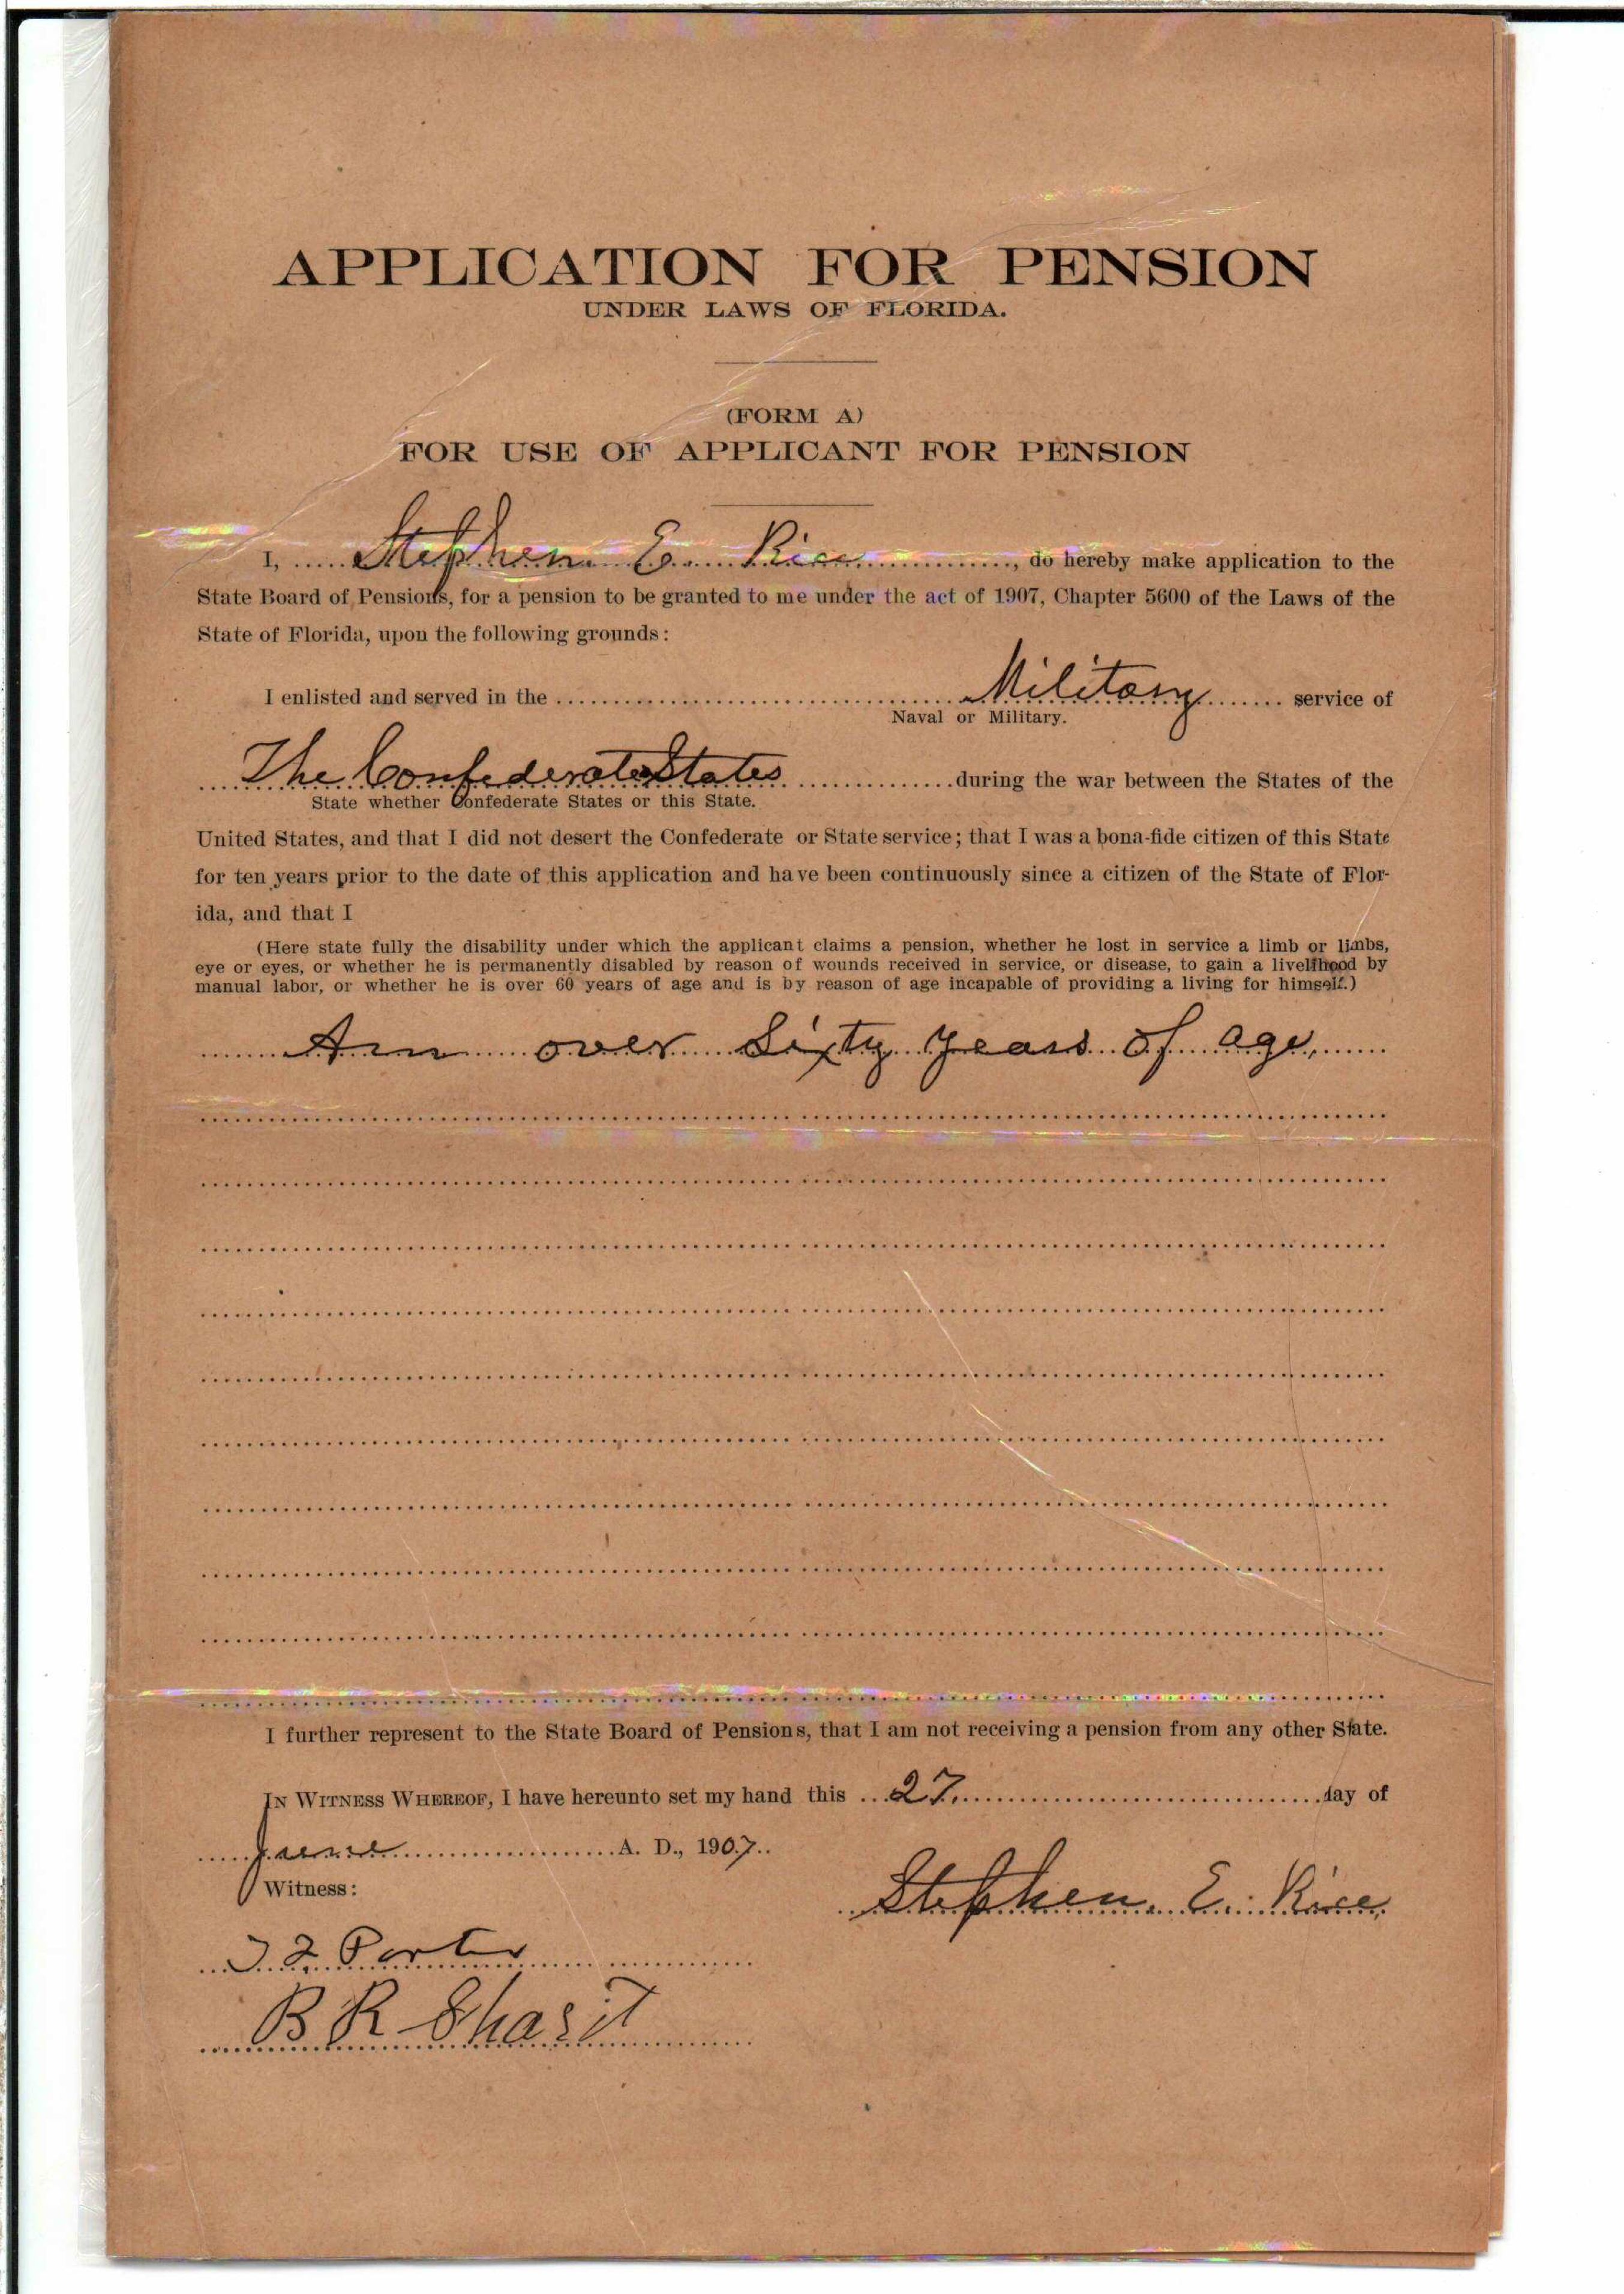 APPLICATION FOR PENSION
UNDER LAWS OF FLORIDA.
(FORM A)
FOR USE OF APPLICANT FOR PENSION
I, Stephen E. Rice, do hereby make application to the
State Board of Pensions, for a pension to be granted to me under the act of 1907, Chapter 5600 of the Laws of the
State of Florida, upon the following grounds:
I enlisted and served in the Military service of
Naval or Military.
The Confederate States during the war between the States of the
State whether Confederate States or this State.
United States, and that I did not desert the Confederate or State service; that I was a bona-fide citizen of this State
for ten years prior to the date of this application and have been continuously since a citizen of the State of Flor-
ida, and that I
(Here state fully the disability under which the applicant claims a pension, whether he lost in service a limb or limbs,
eye or eyes, or whether he is permanently disabled by reason of wounds received in service, or disease, to gain a livelihood by
manual labor, or whether he is over 60 years of age and is by reason of age incapable of providing a living for himself.)
Am over Sixty years of age,
I further represent to the State Board of Pensions, that I am not receiving a pension from any other State.
IN WITNESS WHEREOF, I have hereunto set my hand this 27. day of
June A. D., 1907.
Witness:
Stephen. E. Rice,
Porter
B R Sharit